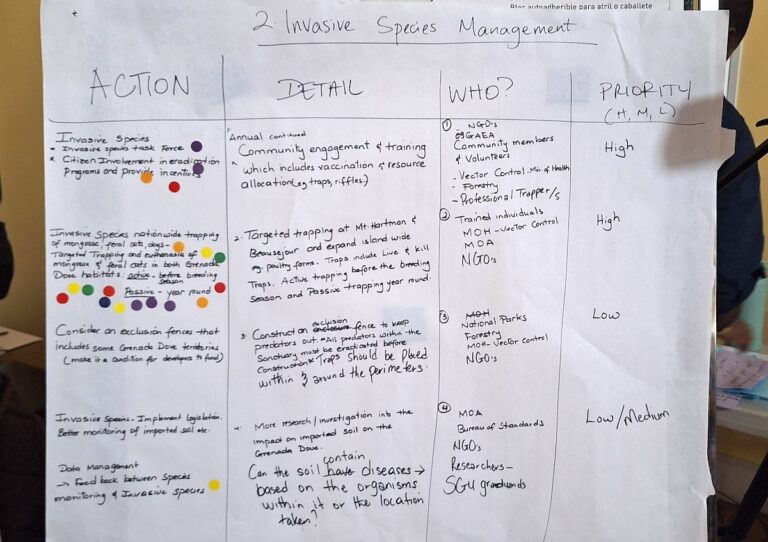 Bloc autoadherible para atril o caballete
2. Invasive Species Management
ACTION
DETAIL
WHO?
PRIORITY
(H, M, L)
Invasive Species
* Invasive species task force
* Citizen Involvement in eradication
Programs and provide incentives
Annual continued
Community engagement & training
which includes vaccination & resource
allocation (eg traps, riffles)
① NGO's
GAEA
Community members
& Volunteers
- Vector Control - Min. of Health
- Forestry
- Professional Trapper/s
High
Invasive Species nationwide trapping
of mongoose, feral cats, dogs -
Targeted Trapping and euthanasia of
mongoose & feral cats in both Grenada
Dove habitats. active - before breeding
season
Passive - year round
2. Targeted trapping at Mt. Hartman &
Beausejour and expand island wide
eg. poultry farms. Traps include Live & Kill
Traps. Active trapping before the breeding
season and Passive trapping year round.
② Trained individuals
MOH - Vector Control
MOA
NGO's
High
Consider an exclusion fences that
includes some Grenada Dove territories
(make it a condition for developers to fund)
3. Construct an enclosure exclusion fence to keep
predators out. * All predators within the
Sanctuary must be eradicated before
Construction * Traps should be placed
within & around the perimeters.
③ MOH
National Parks
Forestry
MOH - Vector Control
NGO's
Low
Invasive Species - Implement legislation.
Better monitoring of imported soil etc.
Data Management
→ Feed back between Species
monitoring & Invasive species
4 More research/investigation into the
impact on imported soil on the
Grenada Dove.
Can the soil have contain diseases →
based on the organisms
within it or the location
taken?
④ MOA
Bureau of Standards
NGO's
Researchers -
SGU
Low/Medium